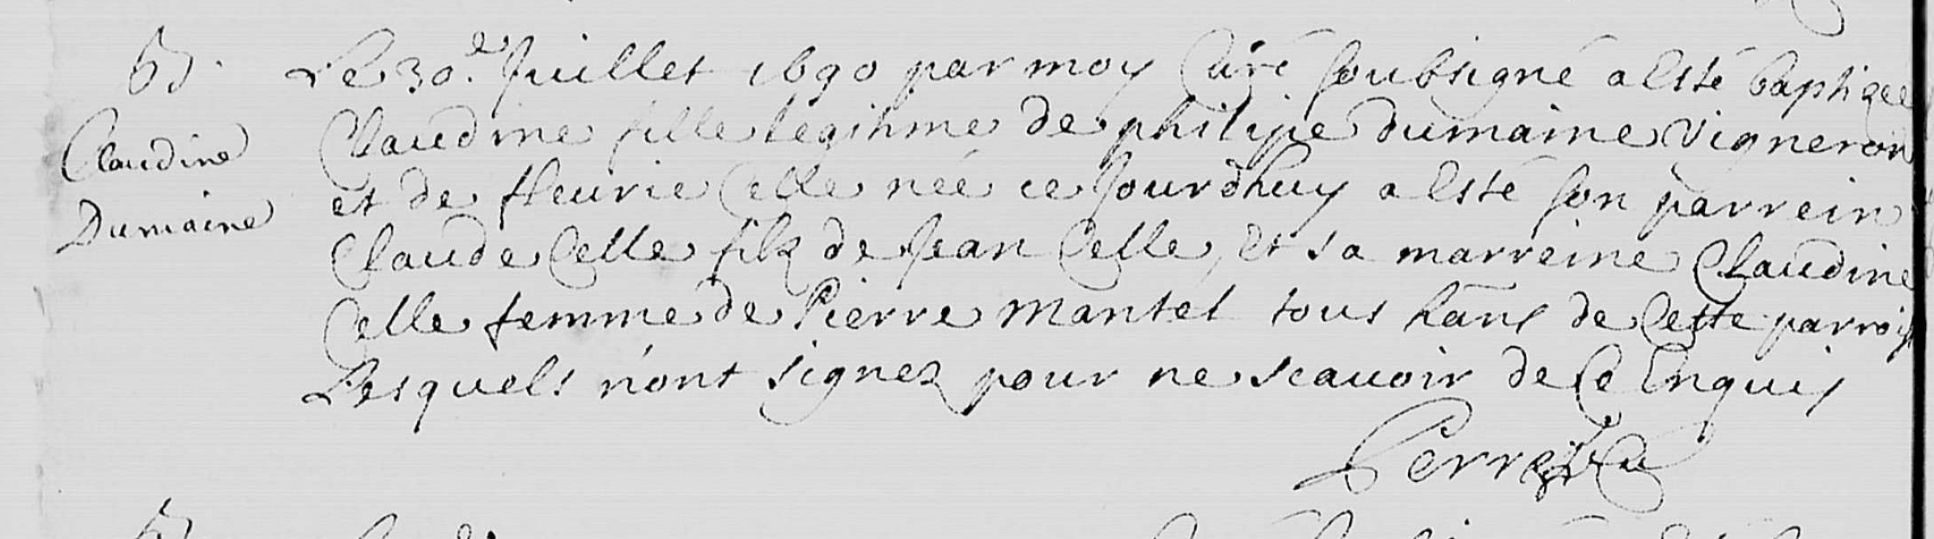 B.
Claudine
Dumaine
Le 30.e Juillet 1690 par moy Curé soubsigné a esté baptizee
Claudine fille legitime de philipe dumaine Vigneron
et de fleurie Celle née ce jourdhuy a esté son parrein
Claude Celle filz de Jean Celle, Et sa marreine Claudine
Celle femme de Pierre Mantel tous hans de Cette parroisse
Lesquels n'ont signez pour ne scauoir de Ce Enquis